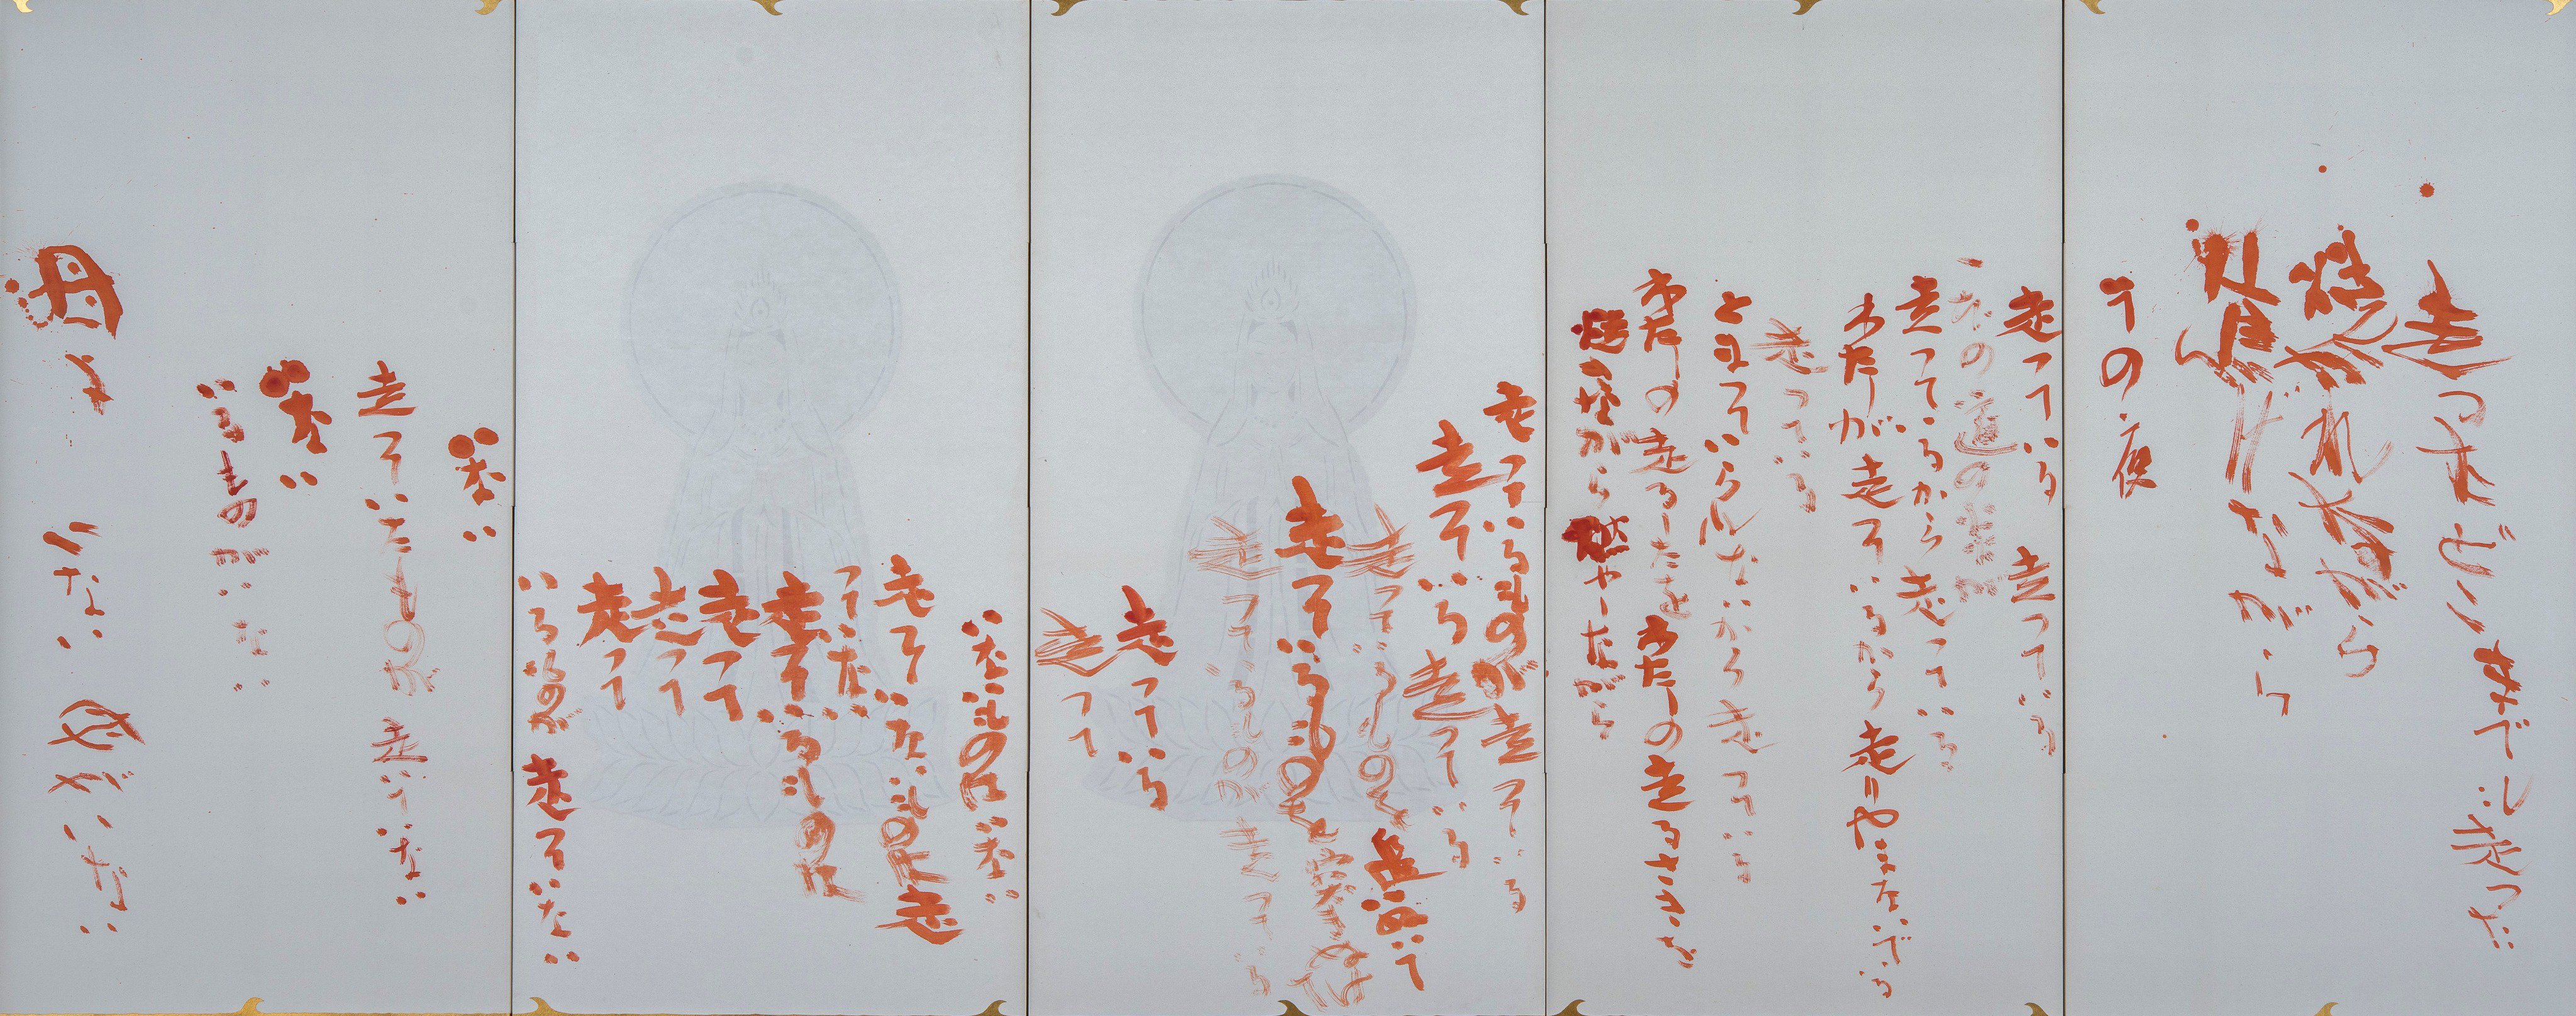 どこまでも走った
焼かれながら
焦げながら
その夜
走っている 走っている
一本の道の炎が
走っているから走っている
わたしが走っているから走りやまないでいる
走っている
とまっていられないから走っている
わたしの走るしたをわたしの走るさきを
焼きながら燃やしながら
走っているものが走っている
走っている走っている
走っているものを追いぬいて
走っているものを突きぬけ
走っているものが走っている
走っている
走って
いないものはいない
走っていないものは走
っていない
走っているものは
走って
走って
走って
いるものが走っていない
いない
走っていたものが走っていない
いない
いるものがいない
母よ いない 母がいない